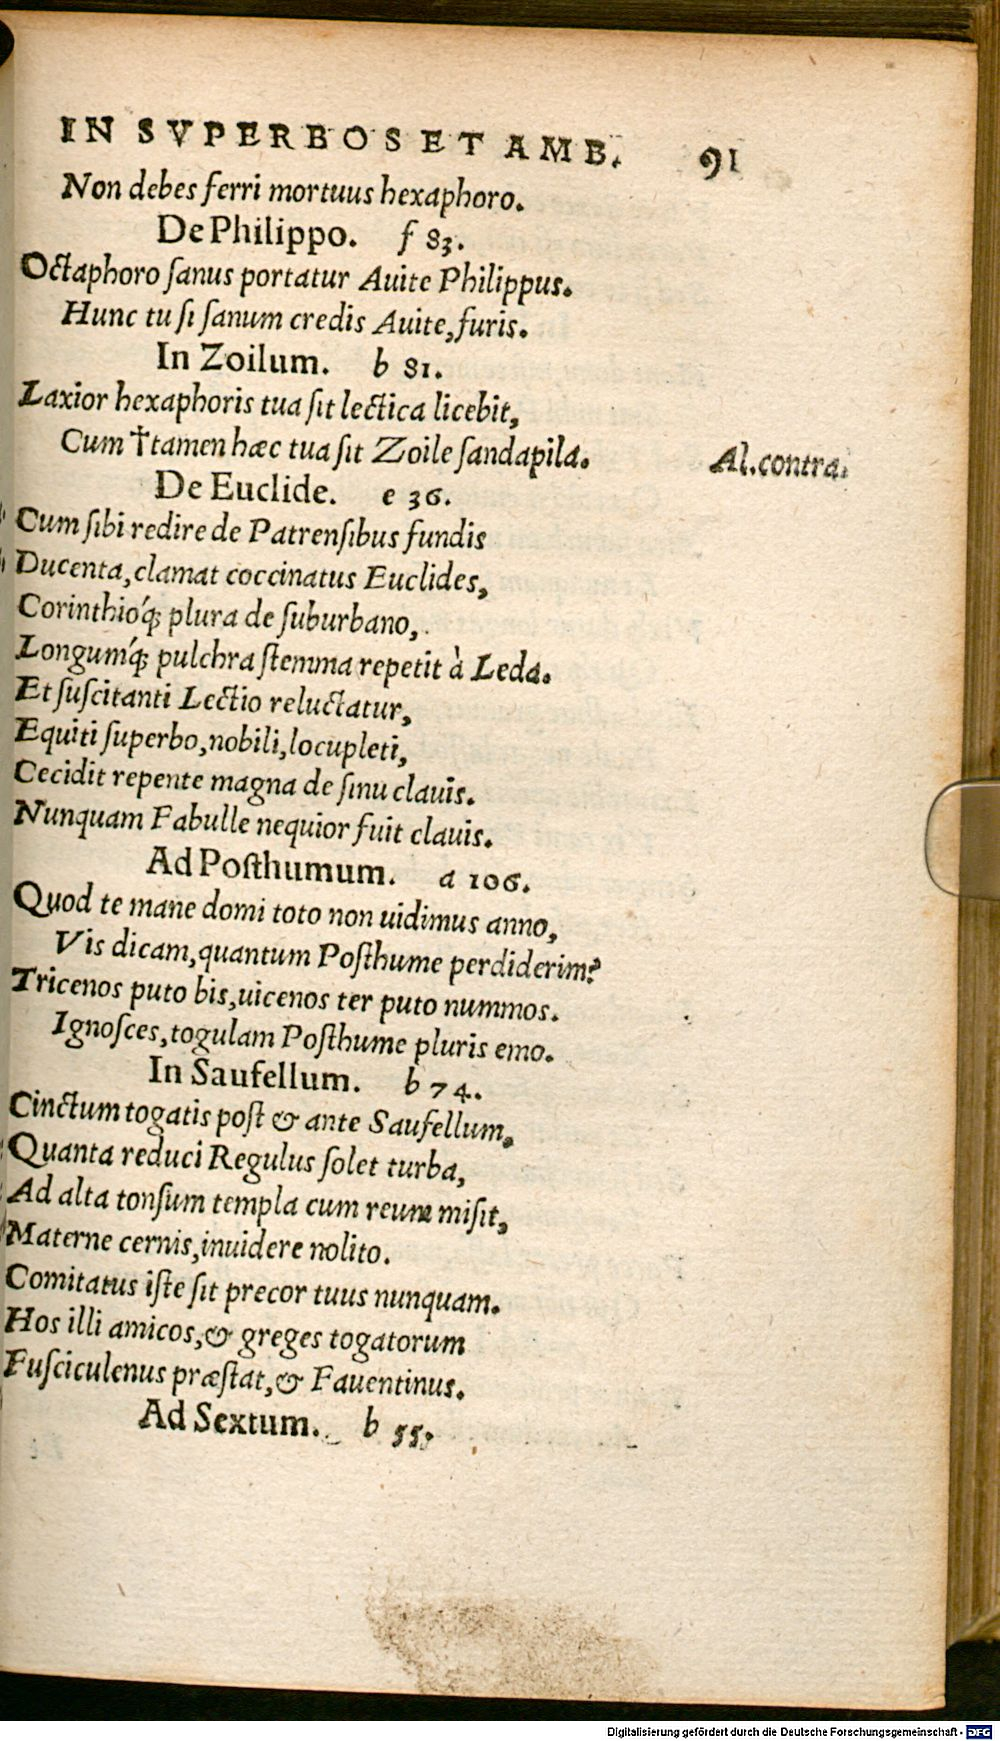 IN SVPERBOS ET AMB. 91
Non debes ferri mortuus hexaphoro.
De Philippo. f 83.
Octaphoro ſanus portatur Auite Philippus.
Hunc tu ſi ſanum credis Auite, furis.
In Zoilum. b 81.
Laxior hexaphoris tua ſit lectica licebit,
Cum †tamen hæc tua ſit Zoile ſandapila. Al. contra.
De Euclide. e 36.
Cum ſibi redire de Patrenſibus fundis
Ducenta, clamat coccinatus Euclides,
Corinthioq́; plura de ſuburbano,
Longumq́; pulchra ſtemma repetit à Leda.
Et ſuſcitanti Lectio reluctatur,
Equiti ſuperbo, nobili, locupleti,
Cecidit repente magna de ſinu clauis.
Nunquam Fabulle nequior fuit clauis.
Ad Poſthumum. a 106.
Quod te mane domi toto non uidimus anno,
Vis dicam, quantum Poſthume perdiderim?
Tricenos puto bis, uicenos ter puto nummos.
Ignoſces, togulam Poſthume pluris emo.
In Saufellum. b 74.
Cinctum togatis poſt & ante Saufellum,
Quanta reduci Regulus ſolet turba,
Ad alta tonſum templa cum reum miſit,
Materne cernis, inuidere nolito.
Comitatus iſte ſit precor tuus nunquam.
Hos illi amicos, & greges togatorum
Fuſciculenus præſtat, & Fauentinus.
Ad Sextum. b 55.
Digitalisierung gefördert durch die Deutsche Forschungsgemeinschaft - DFG